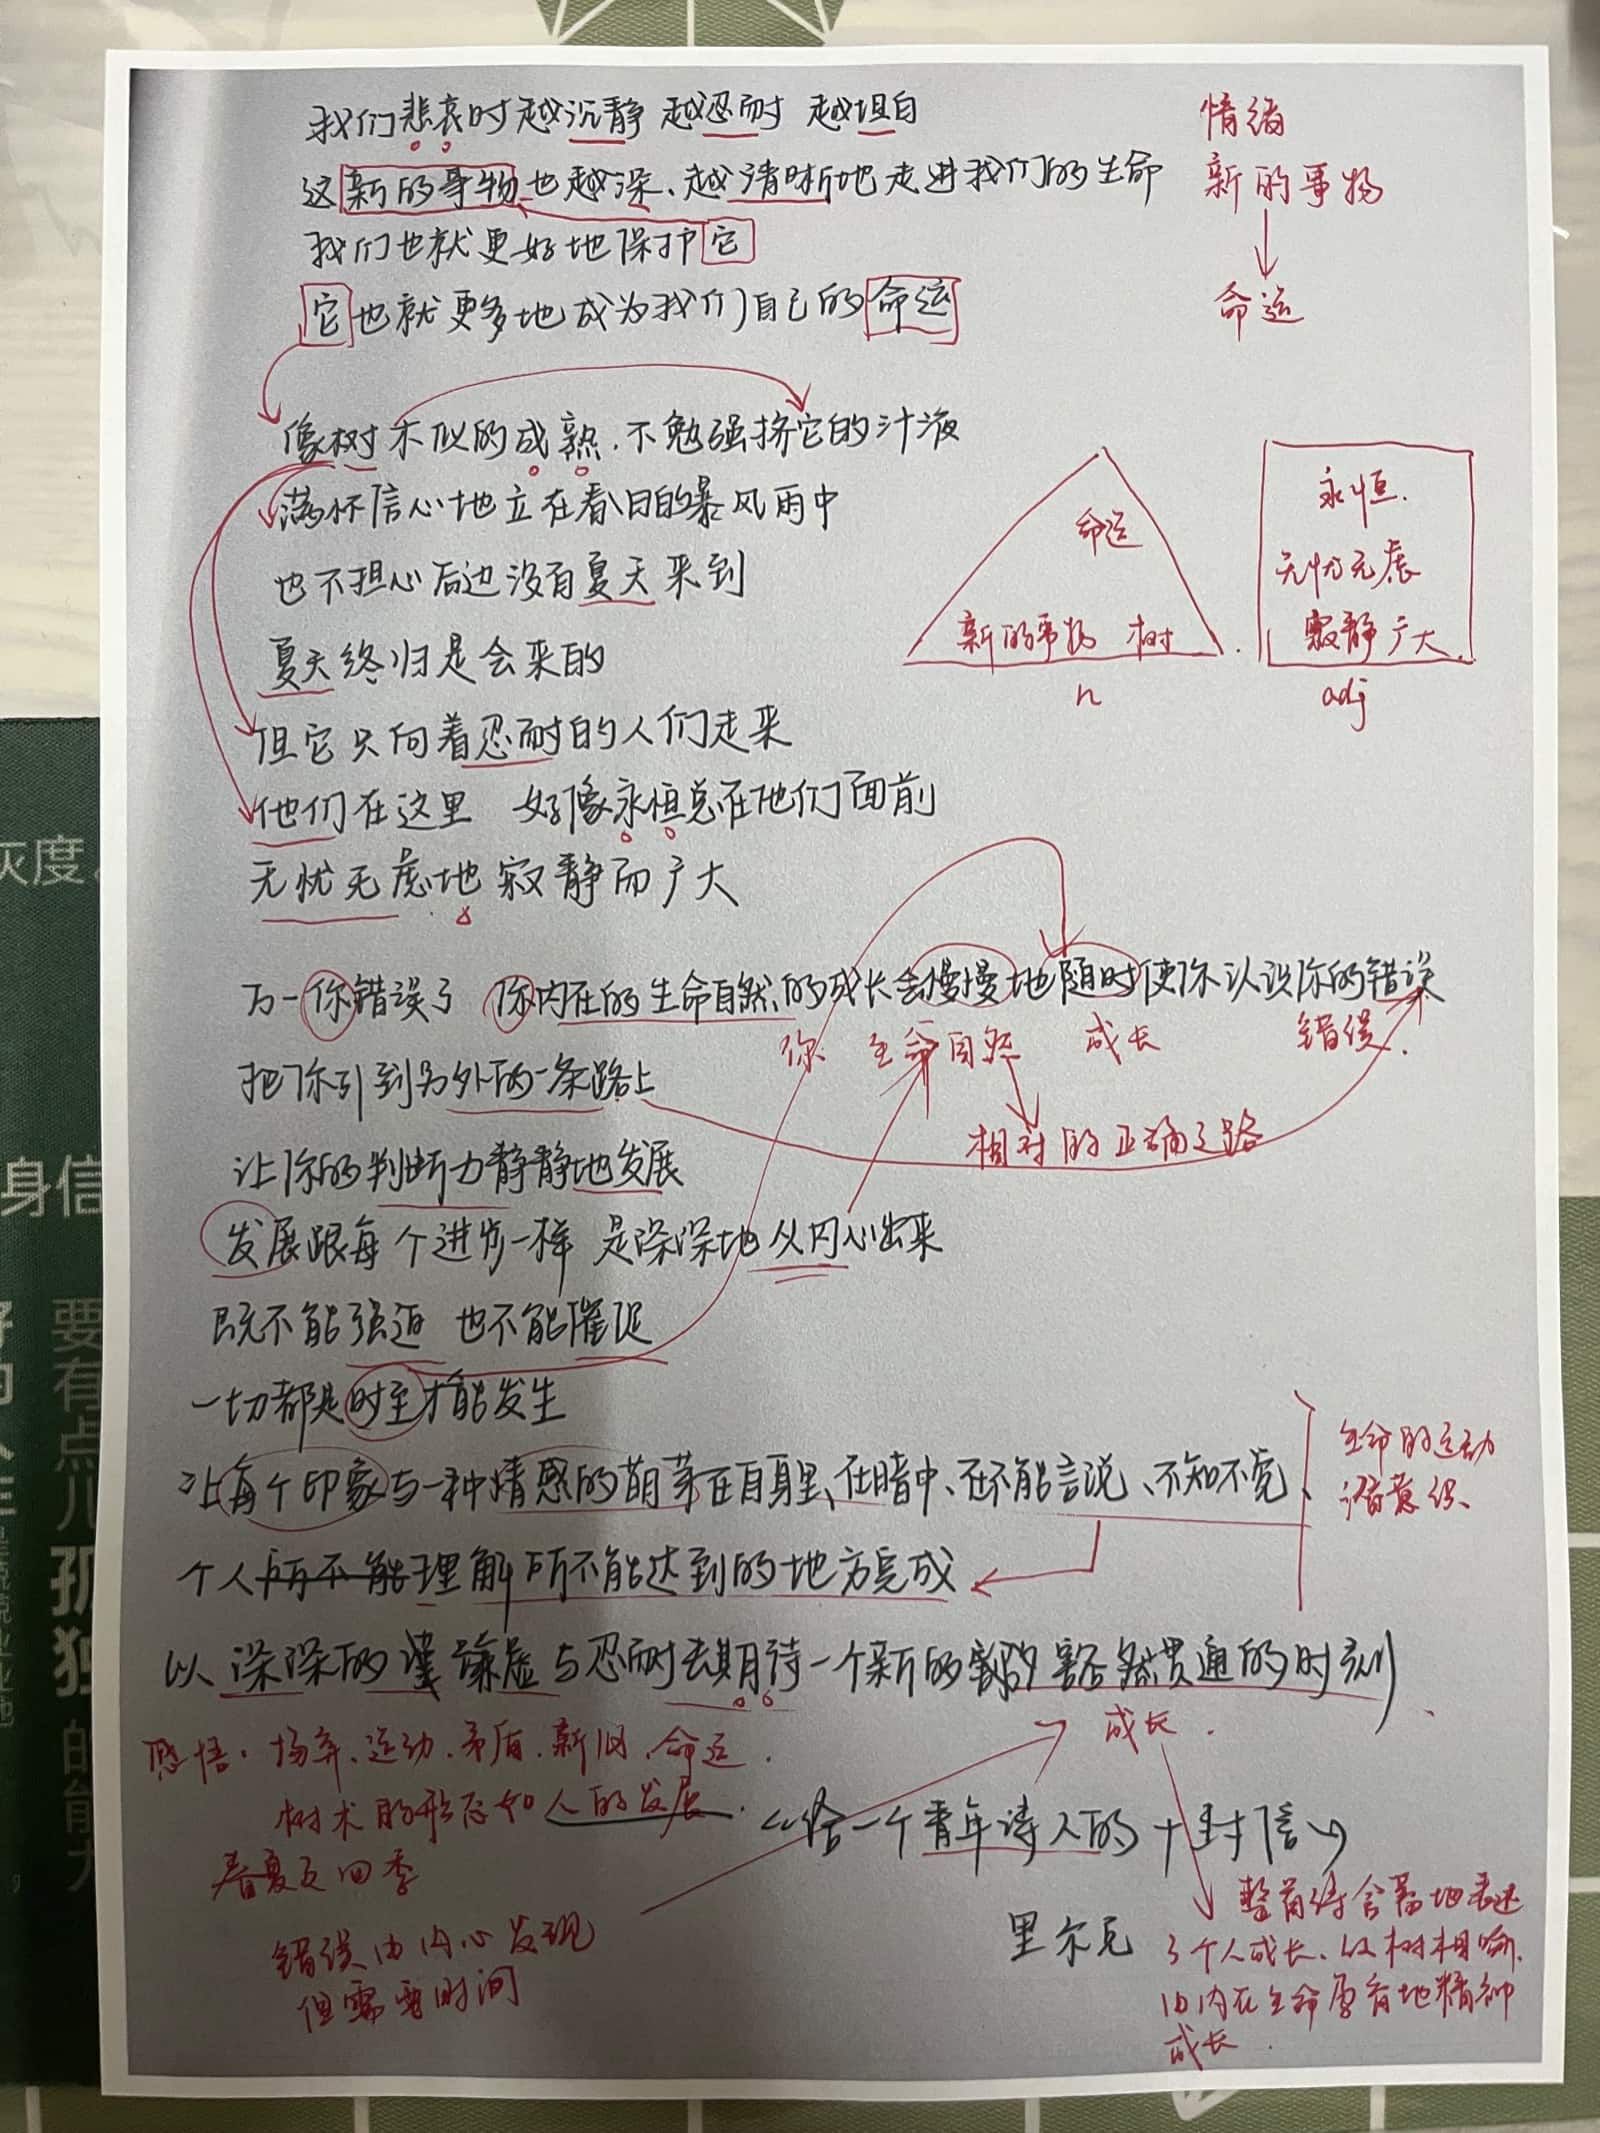 我们悲哀时越沉静 越忍耐 越坦白
这新的事物也越深、越清晰地走进我们的生命
我们也就更好地保护它
它也就更多地成为我们自己的命运
情绪
新的事物
命运
像树木似的成熟.不勉强挤它的汁液
满怀信心地立在春日的暴风雨中
也不担心后边没有夏天来到
夏天终归是会来的
但它只向着忍耐的人们走来
他们在这里 好像永恒总在他们面前
无忧无虑地 寂静而广大
命运
新的事物 树
n
永恒.
无忧无虑
寂静广大
adj
万一你错误了 你内在的生命自然的成长会慢慢地随时使你认识你的错误
你 生命自然 成长 错误.
把你引到另外的一条路上
相对的正确之路
让你的判断力静静地发展
发展跟每个进步一样 是深深地从内心出来
既不能强迫 也不能催促
一切都是时至才能发生
让每个印象与一种情感的萌芽在自身里、在暗中、在不能言说、不知不觉、
个人所不能理解所不能达到的地方完成
生命的运动
潜意识、
以深深的谦虚与忍耐去期待一个新的豁然贯通的时刻
成长.
感悟.扬弃.运动.矛盾.新旧.命运.
树木的形态如人的发展.
春夏及四季
错误由内心发现
但需要时间
《给一个青年诗人的十封信》
里尔克
整首诗含蓄地表述
了个人成长.以树相喻.
由内在生命孕育地精神
成长.
灰度
身信
要有点儿孤独的能力